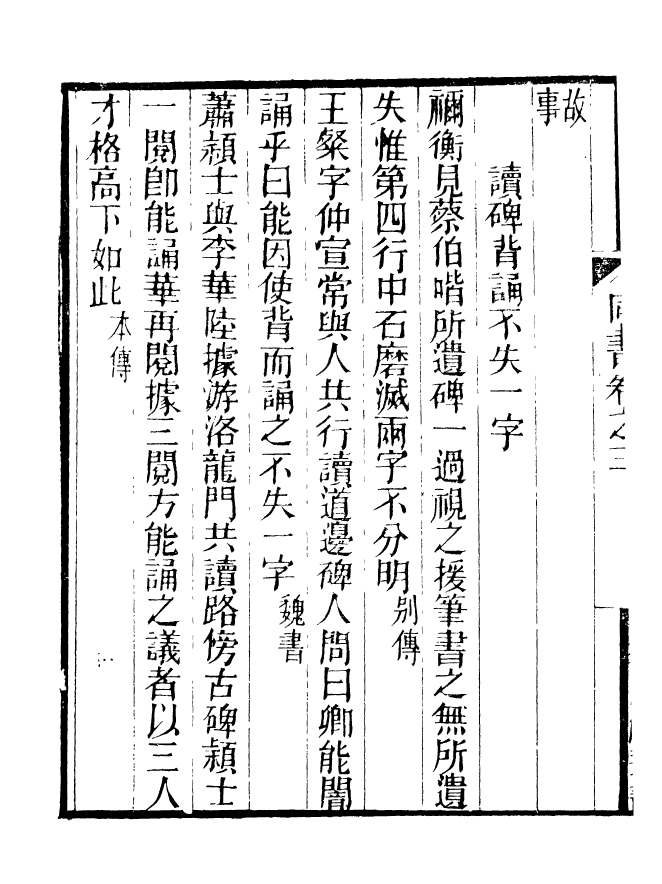 故事
讀碑背誦不失一字
禰衡見蔡伯喈所遺碑一過視之援筆書之無所遺
失惟第四行中石磨滅兩字不分明别傳
王粲字仲宣常與人共行讀道邊碑人問曰卿能闇
誦乎曰能因使背而誦之不失一字魏書
蕭穎士與李華陸據游洛龍門共讀路傍古碑穎士
一閱卽能誦華再閱據三閱方能誦之議者以三人
才格高下如此本傳